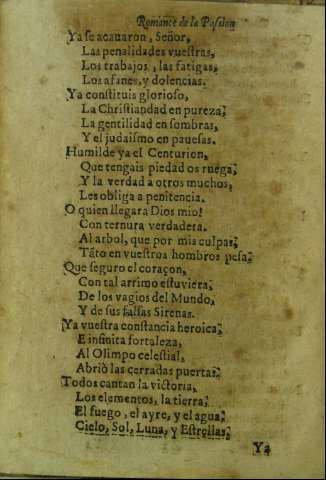 Romance de la Passion
Ya se acauaron, Señor,
Las penalidades vuestras,
Los trabajos, las fatigas,
Los afanes, y dolencias.
Ya constituis glorioso,
La Christiandad en pureza;
La gentilidad en sombras,
Y el judaismo en pauesas.
Humilde ya el Centurion,
Que tengais piedad os ruega;
Y la verdad a otros muchos,
Les obliga a penitencia.
O quien llegara Dios mio!
Con ternura verdadera.
Al arbol, que por mis culpas;
Tãto en vuestros hombros pesa;
Que seguro el coraçon,
Con tal arrimo estuviera;
De los vagios del Mundo,
Y de sus falsas Sirenas.
Ya vuestra constancia heroica;
E infinita fortaleza,
Al Olimpo celestial,
Abriò las cerradas puertas;
Todos cantan la victoria,
Los elementos, la tierra;
El fuego, el ayre, y el agua;
Cielo, Sol, Luna, y Estrellas;
Ya